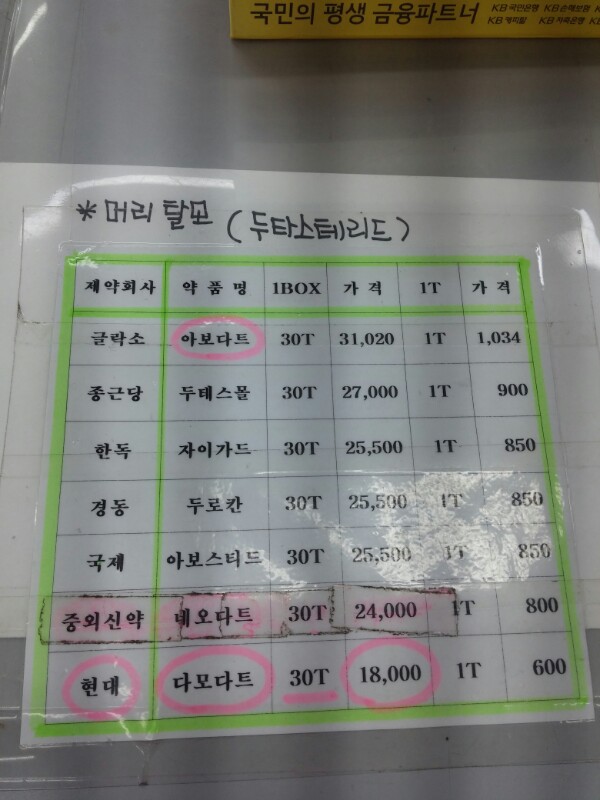 국민의 평생 금융파트너
KB국민은행 KB손해보험
KB캐피탈 KB저축은행
* 머리 탈모 (두타스테리드)
제약회사 약품명 1BOX 가격 1T 가격
글락소 아보다트 30T 31,020 1T 1,034
종근당 두테스몰 30T 27,000 1T 900
한독 자이가드 30T 25,500 1T 850
경동 두로칸 30T 25,500 1T 850
국제 아보스티드 30T 25,500 1T 850
중외신약 네오다트 30T 24,000 1T 800
현대 다모다트 30T 18,000 1T 600